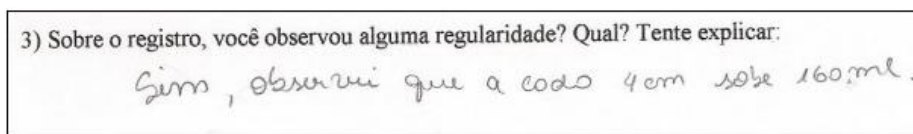 3) Sobre o registro, você observou alguma regularidade? Qual? Tente explicar:
Sim, observei que a codo 4cm sobe 160ml.